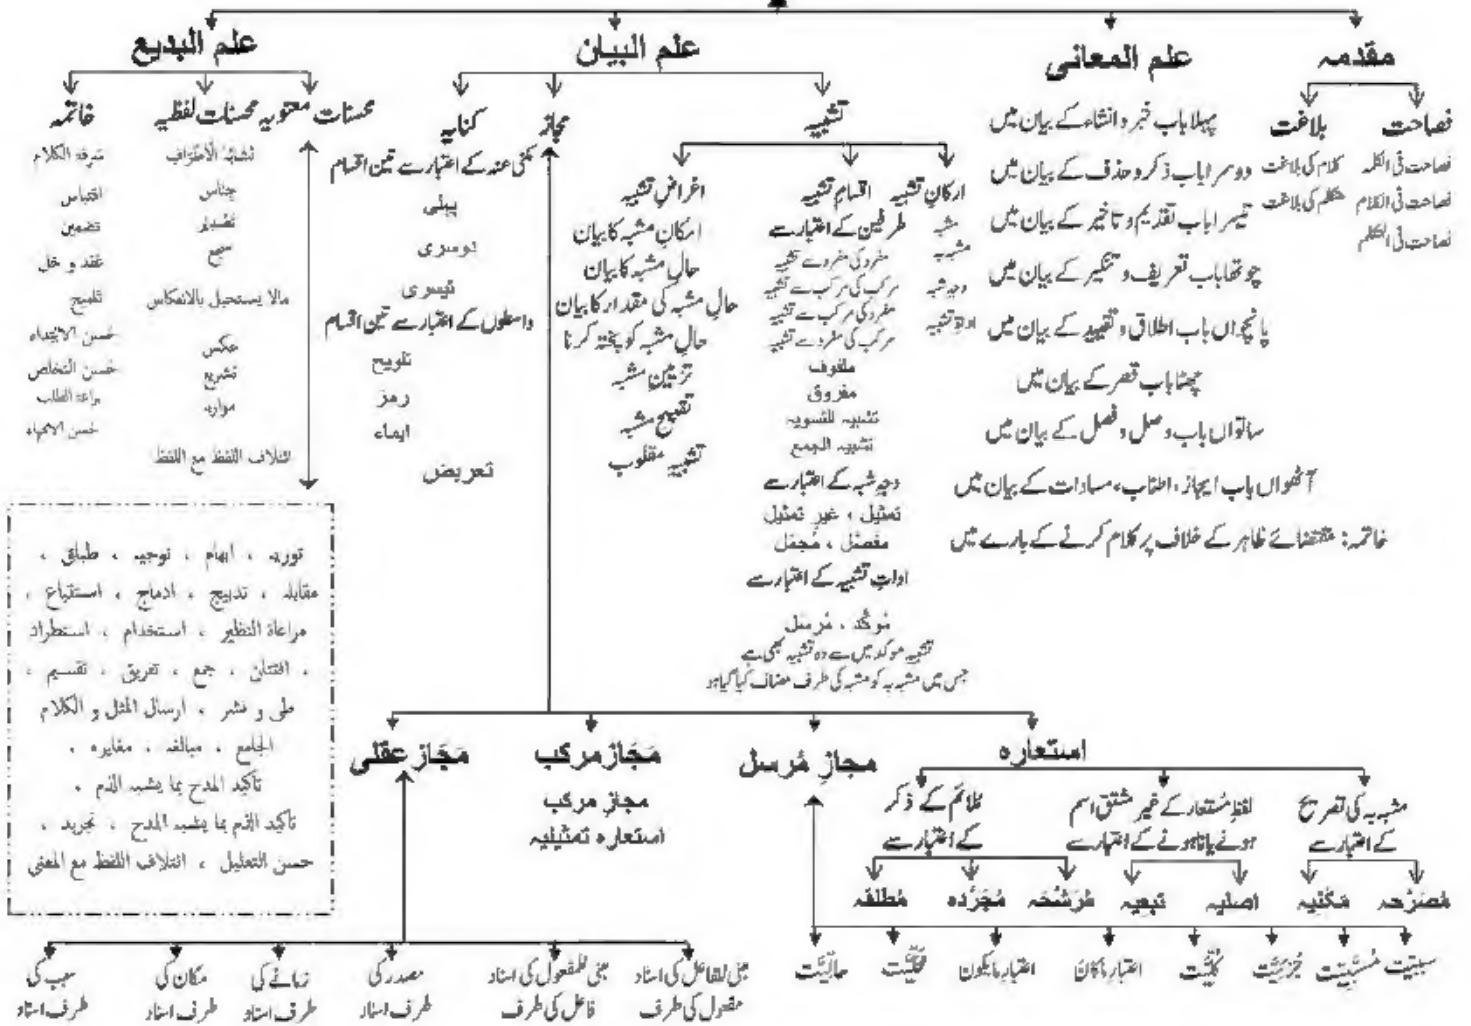 مقدمہ
علم المعانی
علم البیان
علم البدیع
فصاحت
بلاغت
فصاحت فی الکلمہ
فصاحت فی الکلام
فصاحت فی المتکلم
کلام کی بلاغت
متکلم کی بلاغت
پہلا باب خبر و انشاء کے بیان میں
دوسرا باب ذکر و حذف کے بیان میں
تیسرا باب تقدیم و تاخیر کے بیان میں
چوتھا باب تعریف و تنکیر کے بیان میں
پانچواں باب اطلاق و تقیید کے بیان میں
چھٹا باب قصر کے بیان میں
ساتواں باب وصل و فصل کے بیان میں
آٹھواں باب ایجاز، اطناب، مساوات کے بیان میں
خاتمہ: مقتضائے ظاہر کے خلاف پر کلام کرنے کے بارے میں
تشبیہ
مجاز
کنایہ
ارکانِ تشبیہ
مشبہ
مشبہ بہ
وجہِ شبہ
اداۃِ تشبیہ
اقسامِ تشبیہ
طرفین کے اعتبار سے
مفرد کی مفرد سے تشبیہ
مرکب کی مرکب سے تشبیہ
مفرد کی مرکب سے تشبیہ
مرکب کی مفرد سے تشبیہ
ملفوف
مفروق
تشبیہ للتسویہ
تشبیہ الجمع
وجہِ شبہ کے اعتبار سے
تمثیل ، غیرِ تمثیل
مفصّل ، مُجمَل
اداتِ تشبیہ کے اعتبار سے
مُوکَّد ، مُرسَل
تشبیہ موکد میں سے وہ تشبیہ بھی ہے
جس میں مشبہ بہ کو مشبہ کی طرف مضاف کیا گیا ہو
اغراضِ تشبیہ
امکانِ مشبہ کا بیان
حالِ مشبہ کا بیان
حالِ مشبہ کی مقدار کا بیان
حالِ مشبہ کو پختہ کرنا
تزیینِ مشبہ
تقبیحِ مشبہ
تشبیہِ مقلوب
مکنی عنہ کے اعتبار سے تین اقسام
پہلی
دوسری
تیسری
واسطوں کے اعتبار سے تین اقسام
تلویح
رمز
ایماء
تعریض
محسنات معنویہ
محسنات لفظیہ
خاتمہ
تشابُہُ الْاَطْرَاف
جِناس
تصدیر
سجع
مالا یستحیل بالانعکاس
عکس
تشریع
مواربہ
ائتلاف اللفظ مع اللفظ
سَرِقۃ الکلام
اقتباس
تضمین
عَقد و حَل
تلمیح
حُسن الابتداء
حُسن التخلص
براعۃ الطلب
حُسن الانتہاء
توریہ ، ابهام ، توجیہ ، طباق ،
مقابلہ ، تدبیج ، ادماج ، استتباع ،
مراعاۃ النظیر ، استخدام ، استطراد
، افتنان ، جمع ، تفریق ، تقسیم ،
طی و نشر ، ارسال المثل و الکلام
الجامع ، مبالغہ ، مغایرہ ،
تأکید المدح بما یشبہ الذم ،
تأکید الذم بما یشبہ المدح ، تجرید ،
حسن التعلیل ، ائتلاف اللفظ مع المعنی
استعارہ
مجازِ مُرسل
مَجَازِ مرکب
مَجَازِ عقلی
مجازِ مرکب
استعارہ تمثیلیہ
مشبہ بہ کی تصریح
کے اعتبار سے
لفظِ مُستعار کے غیر مشتق اسم
ہونے یا نا ہونے کے اعتبار سے
مُلائم کے ذکر
کے اعتبار سے
مُصَرَّحہ
مَکْنیہ
اصلیہ
تبعیہ
مُرَشَّحہ
مُجَرَّدہ
مُطلقہ
سببِیَّت
مُسَبَّبِیَّت
جُزئِیَّت
کُلِّیَّت
اعتبارِ ماکانَ
اعتبارِ مایکون
مَحَلِّیَّت
حالِّیَّت
مبنی للفاعل کی اسناد
مفعول کی طرف
مبنی للمفعول کی اسناد
فاعل کی طرف
مصدر کی
طرف اسناد
زمانے کی
طرف اسناد
مکان کی
طرف اسناد
سبب کی
طرف اسناد